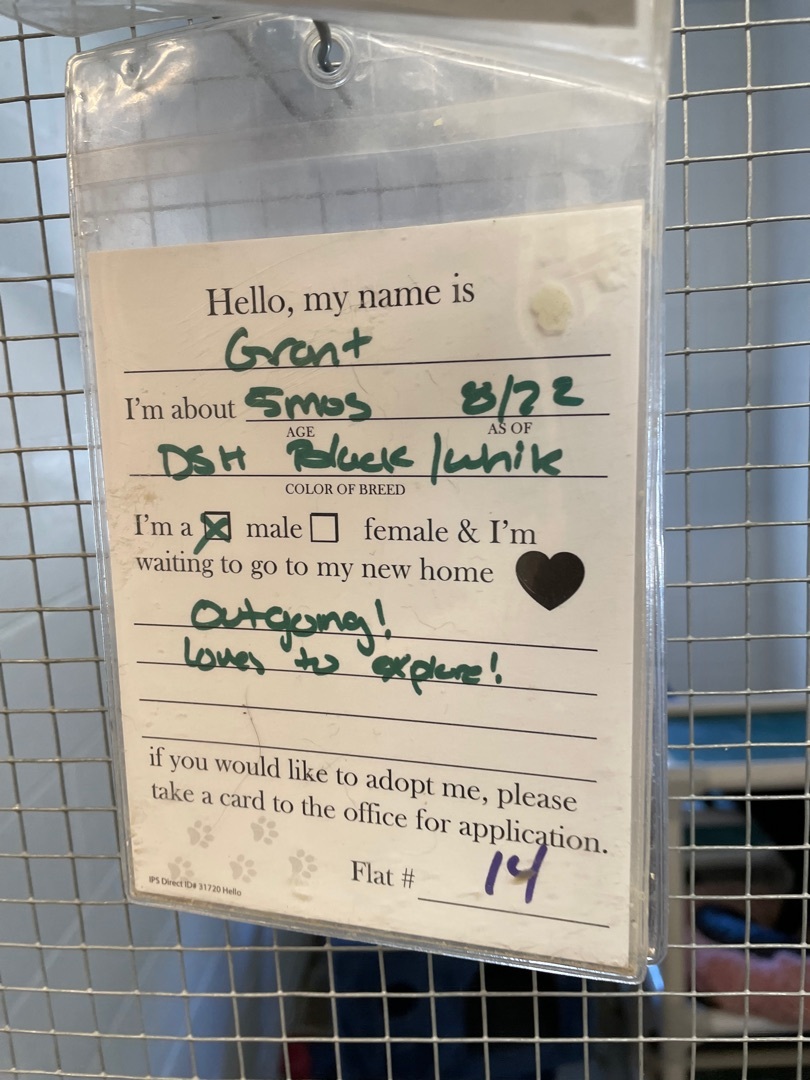 Hello, my name is
Grant
I'm about 5mos 8/22
AGE AS OF
DSH Black/white
COLOR OF BREED
I'm a ☒ male ☐ female & I'm
waiting to go to my new home
Outgoing!
Loves to explore!
if you would like to adopt me, please
take a card to the office for application.
Flat # 14
IPS Direct ID# 31720 Hello